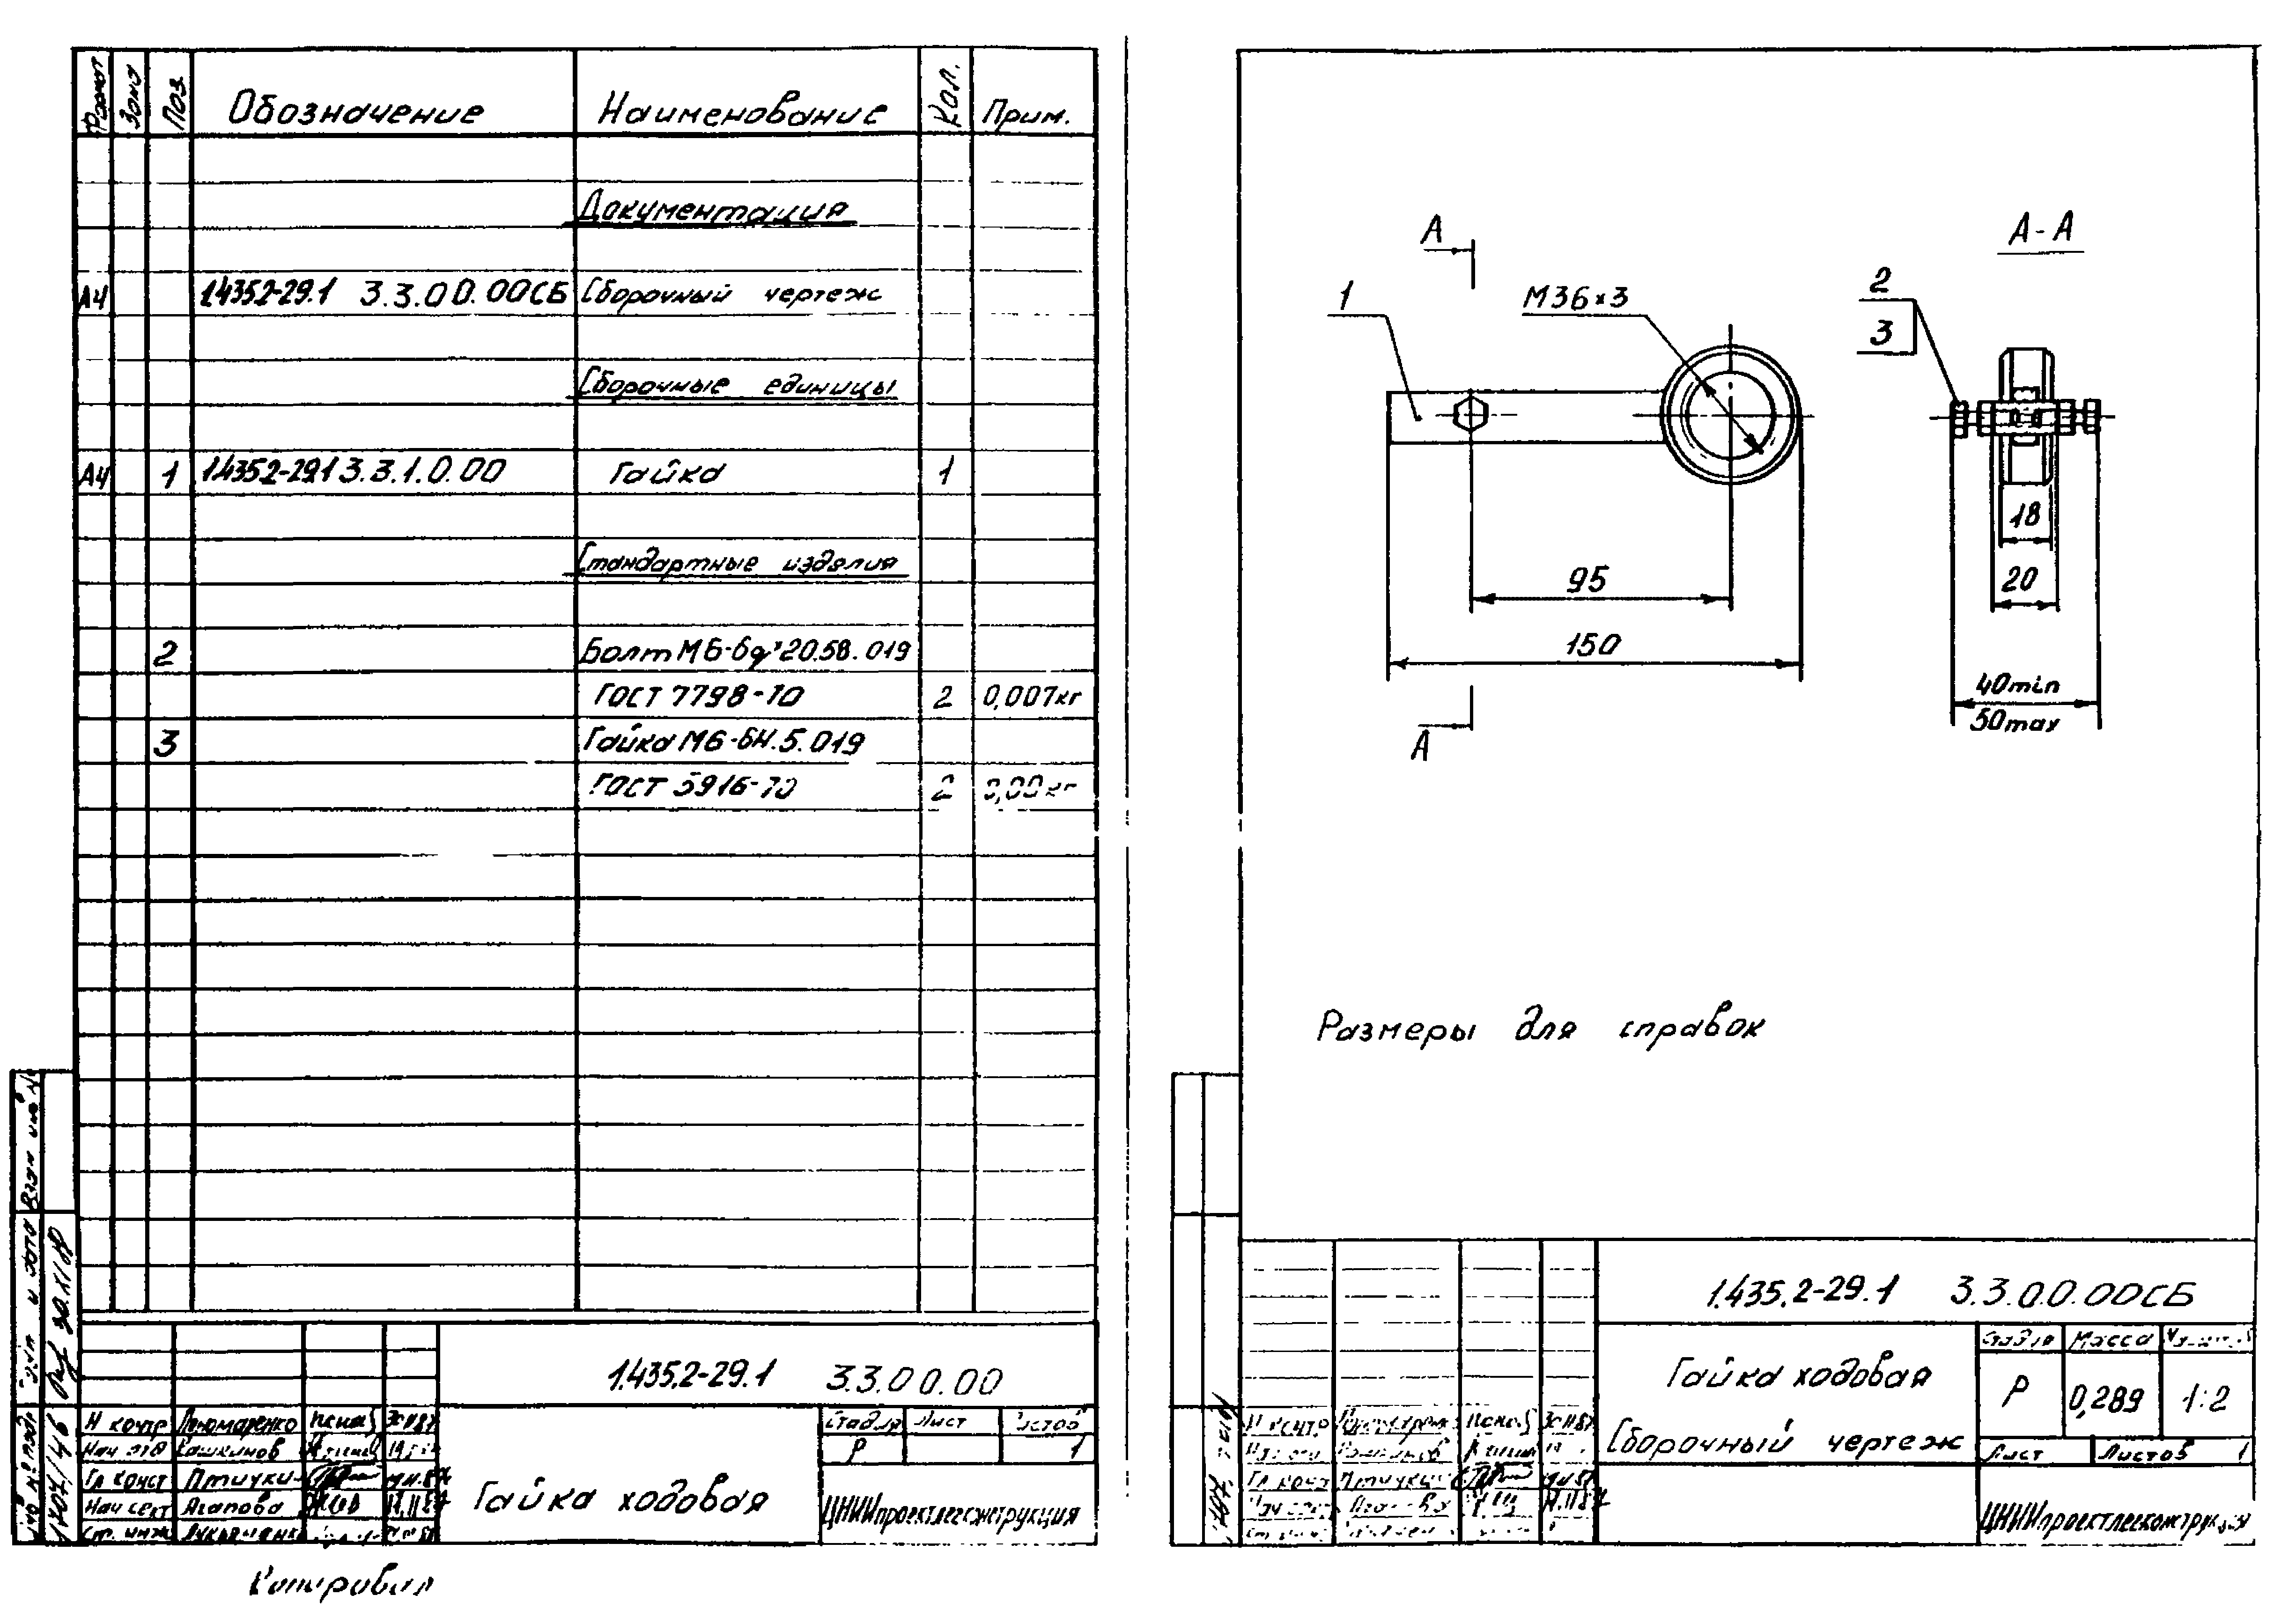 Формат Зона Поз. Обозначение Наименование Кол. Прим.
Документация
А4 1.435.2-29.1 3.3.0 0.00СБ Сборочный чертеж
Сборочные единицы
А4 1 1.435.2-29.1 3.3.1.0.00 Гайка 1
Стандартные изделия
2 Болт М6-6g×20.58.019
ГОСТ 7798-70 2 0,007кг
3 Гайка М6-6Н.5.019
ГОСТ 5916-70 2
1.435.2-29.1 3.3.0 0.00
Н контр Пономаренко
Стадия Лист Листов
Р 1
Нач отд Кашкинов
Гл конст
Нач сект Агапова
Ст. инж
Гайка ходовая
ЦНИИпроектлегконструкция
Копировал
А
А-А
1
М36×3
2
3
18
20
95
150
40min
50max
А
Размеры для справок
1.435.2-29.1 3.3.0.0.00СБ
Гайка ходовая
Сборочный чертеж
Стадия Масса
Р 0,289 1:2
Лист Листов 1
Н контр
Гл конст
ЦНИИпроектлегконструкция